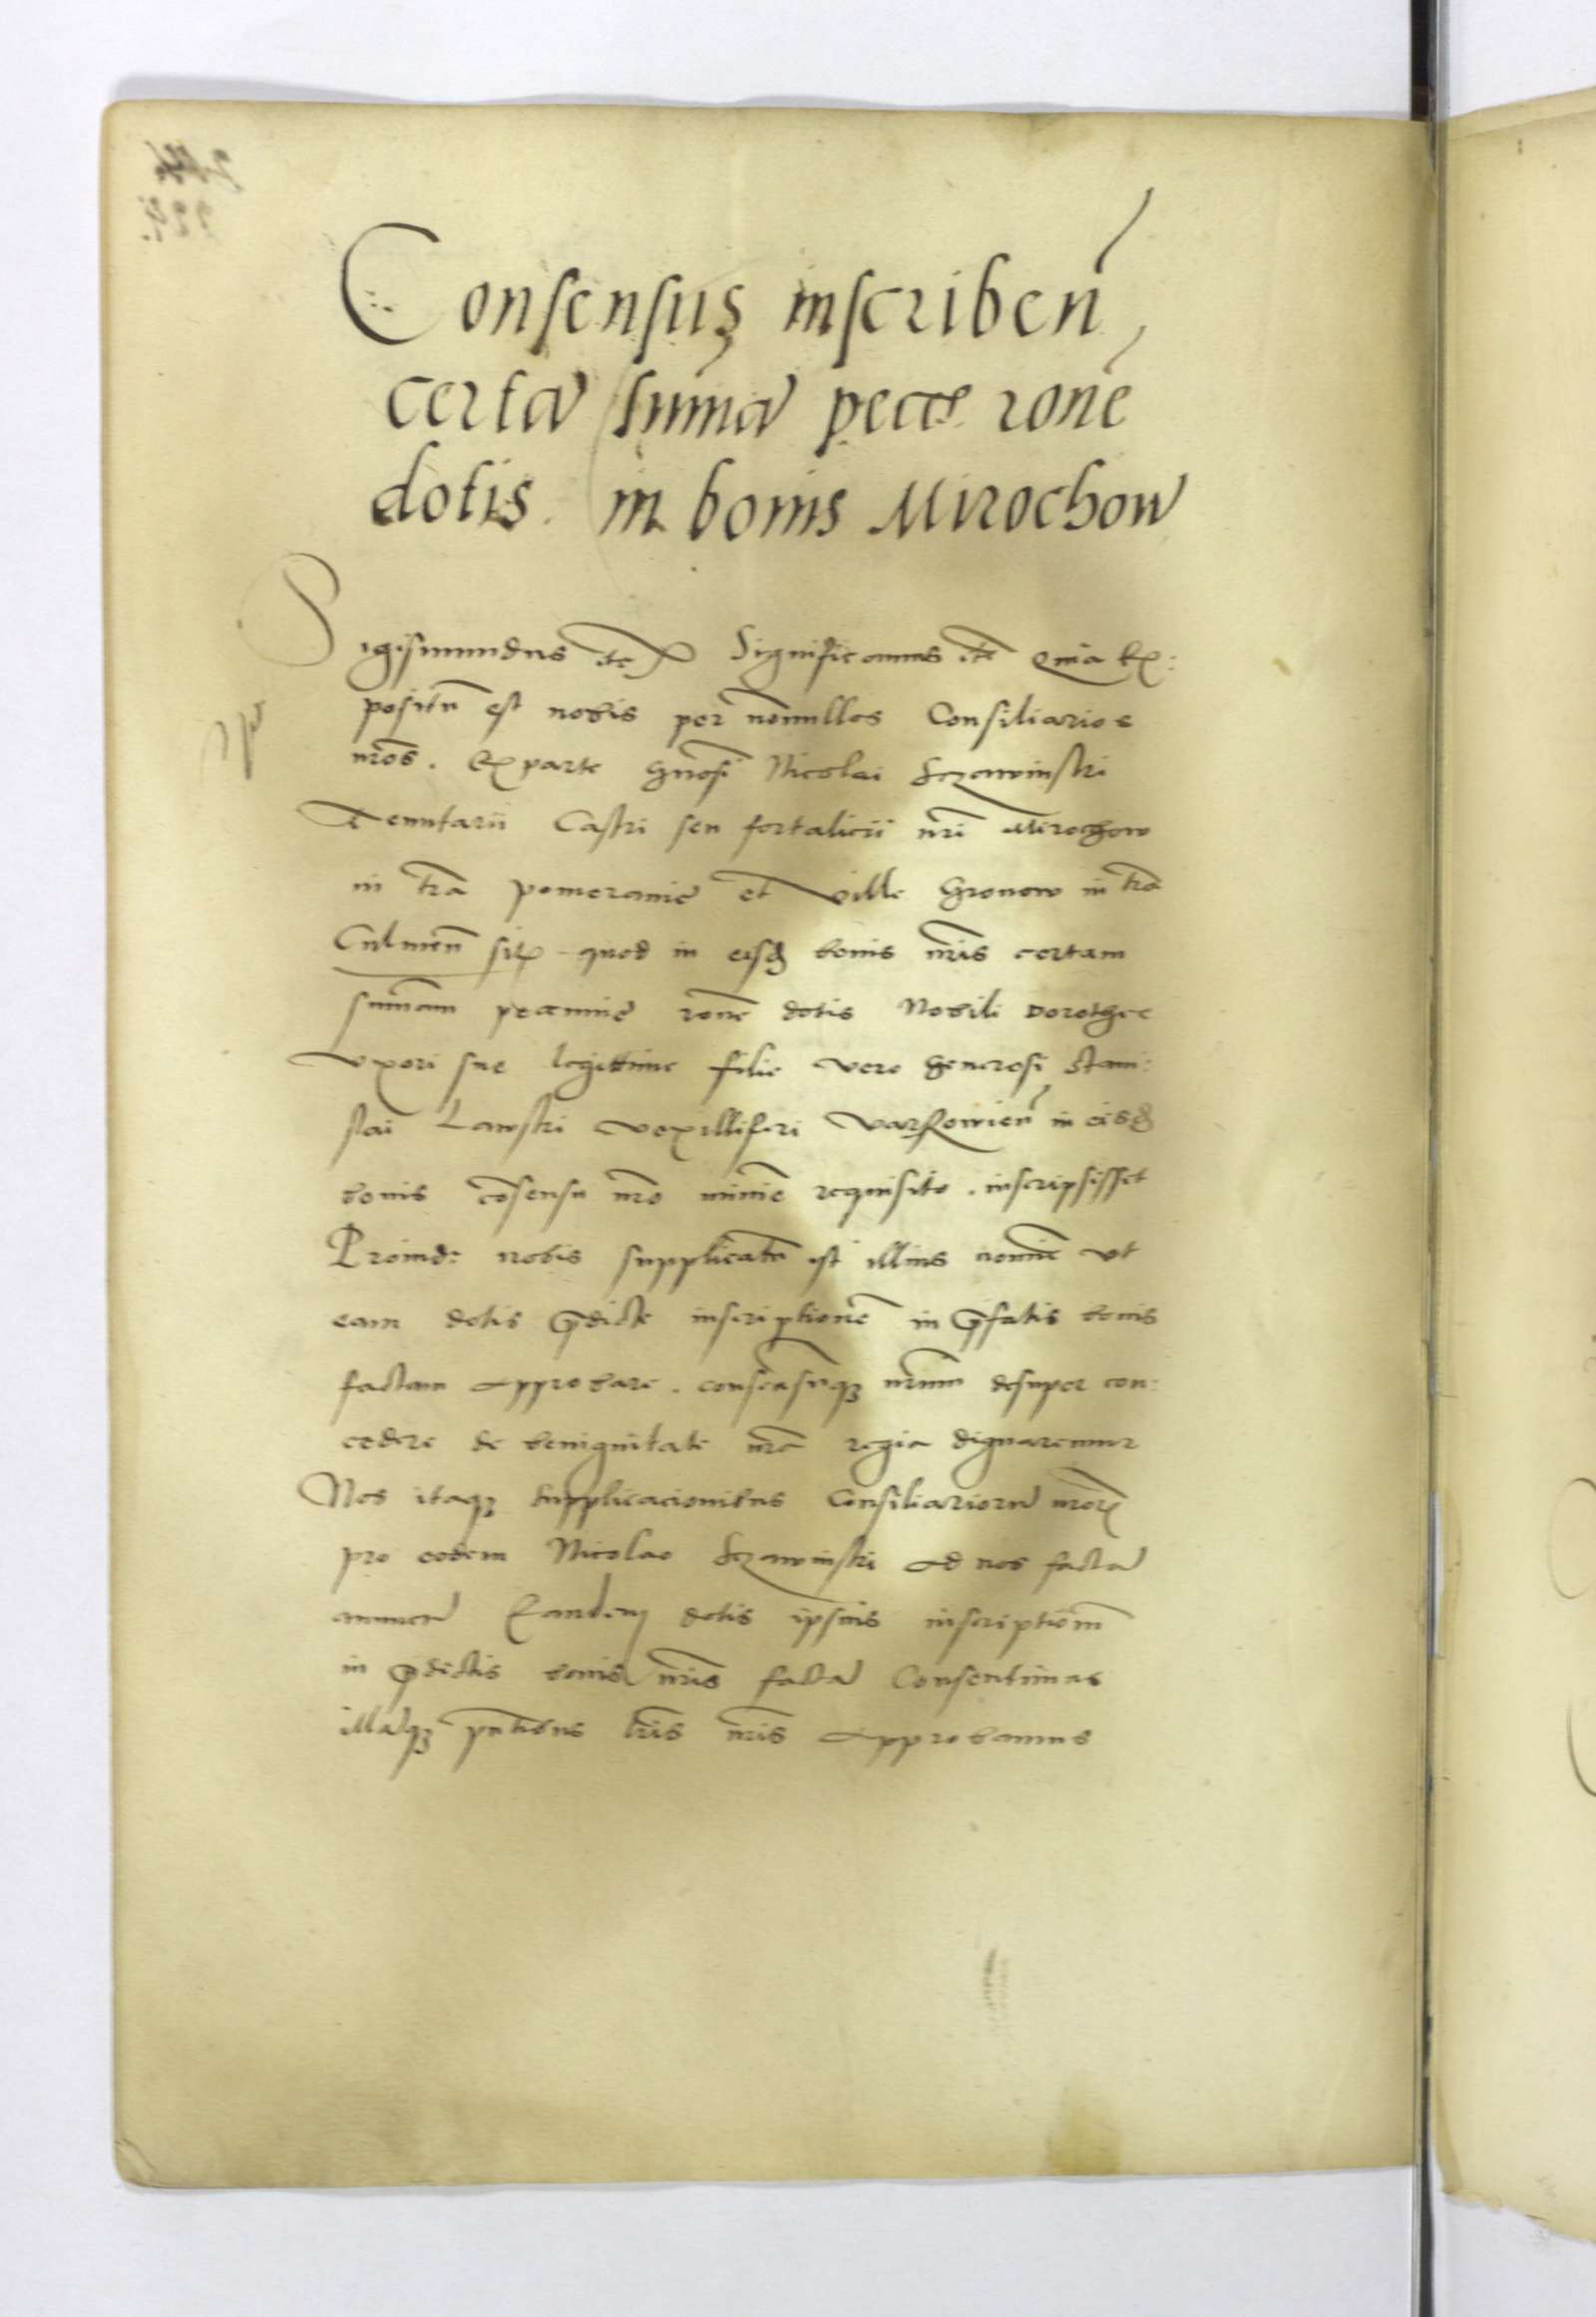 Consensus inscriben
certa suma pecce rone
dotis in bonis Mirochow
Sigismundus etc Significamus etc Quia Ex:
positu est nobis per nonnullos Consiliarios
nros. Ex parte Gnosi Nicolai Sczawinski
Tenutarii Castri seu fortalicii nri Mirochow
in tra pomeranie et Ville Gronow in tra
Culmen sit quod in eisd bonis nris certam
summam pecunie rone dotis Nobili Dorothee
Uxori sue legittime filie vero Generosi Stani:
slai Lawski Vexilliferi Varschowien in eisd
bonis cosensu nro minime requisito. inscripsisset
Proinde nobis supplicatu est illius nomine ut
eam dotis pdicte inscriptione in pfatis bonis
factam approbare. consensuq nrum desuper con:
cedere de benignitate nra regia dignaremur
Nos itaq Supplicacionibus Consiliarioru nror
pro eodem Nicolao Sczawinski ad nos facta
annuen Eandem dotis ipsius inscriptionem
in pdictis bonis nris facta Consentimus
illaq pntibus lris nris approbamus